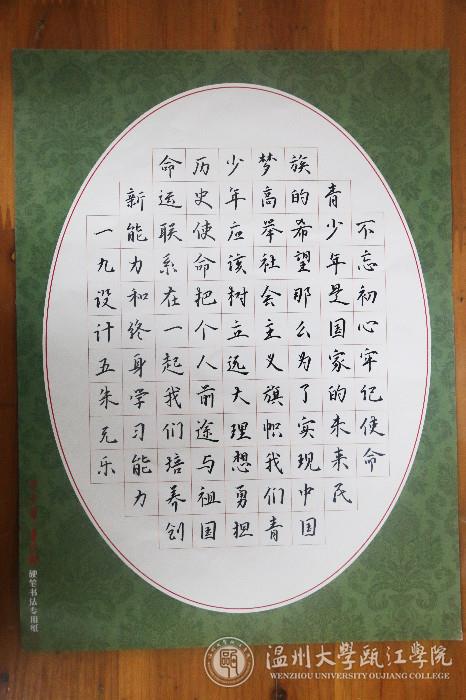 不忘初心牢记使命
青少年是国家的未来民
族的希望那么为了实现中国
梦高举社会主义旗帜我们青
少年应该树立远大理想勇担
历史使命把个人前途与祖国
命运联系在一起我们培养创
新能力和终身学习能力
一九设计五朱乐
硬笔书法专用纸
温州大学瓯江学院
WENZHOU UNIVERSITY OUJIANG COLLEGE